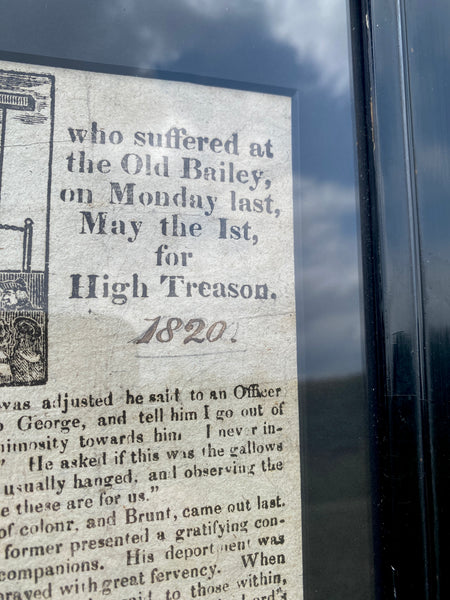 who suffered at
the Old Bailey,
on Monday last,
May the 1st,
for
High Treason.
1820.
was adjusted he said to an Officer
George, and tell him I go out of
nimosity towards him I never in-
" He asked if this was the gallows
usually hanged, and observing the
e these are for us."
of colonr, and Brunt, came out last.
former presented a gratifying con-
companions. His deportment was
prayed with great fervency. When
said to those within,
Lord's